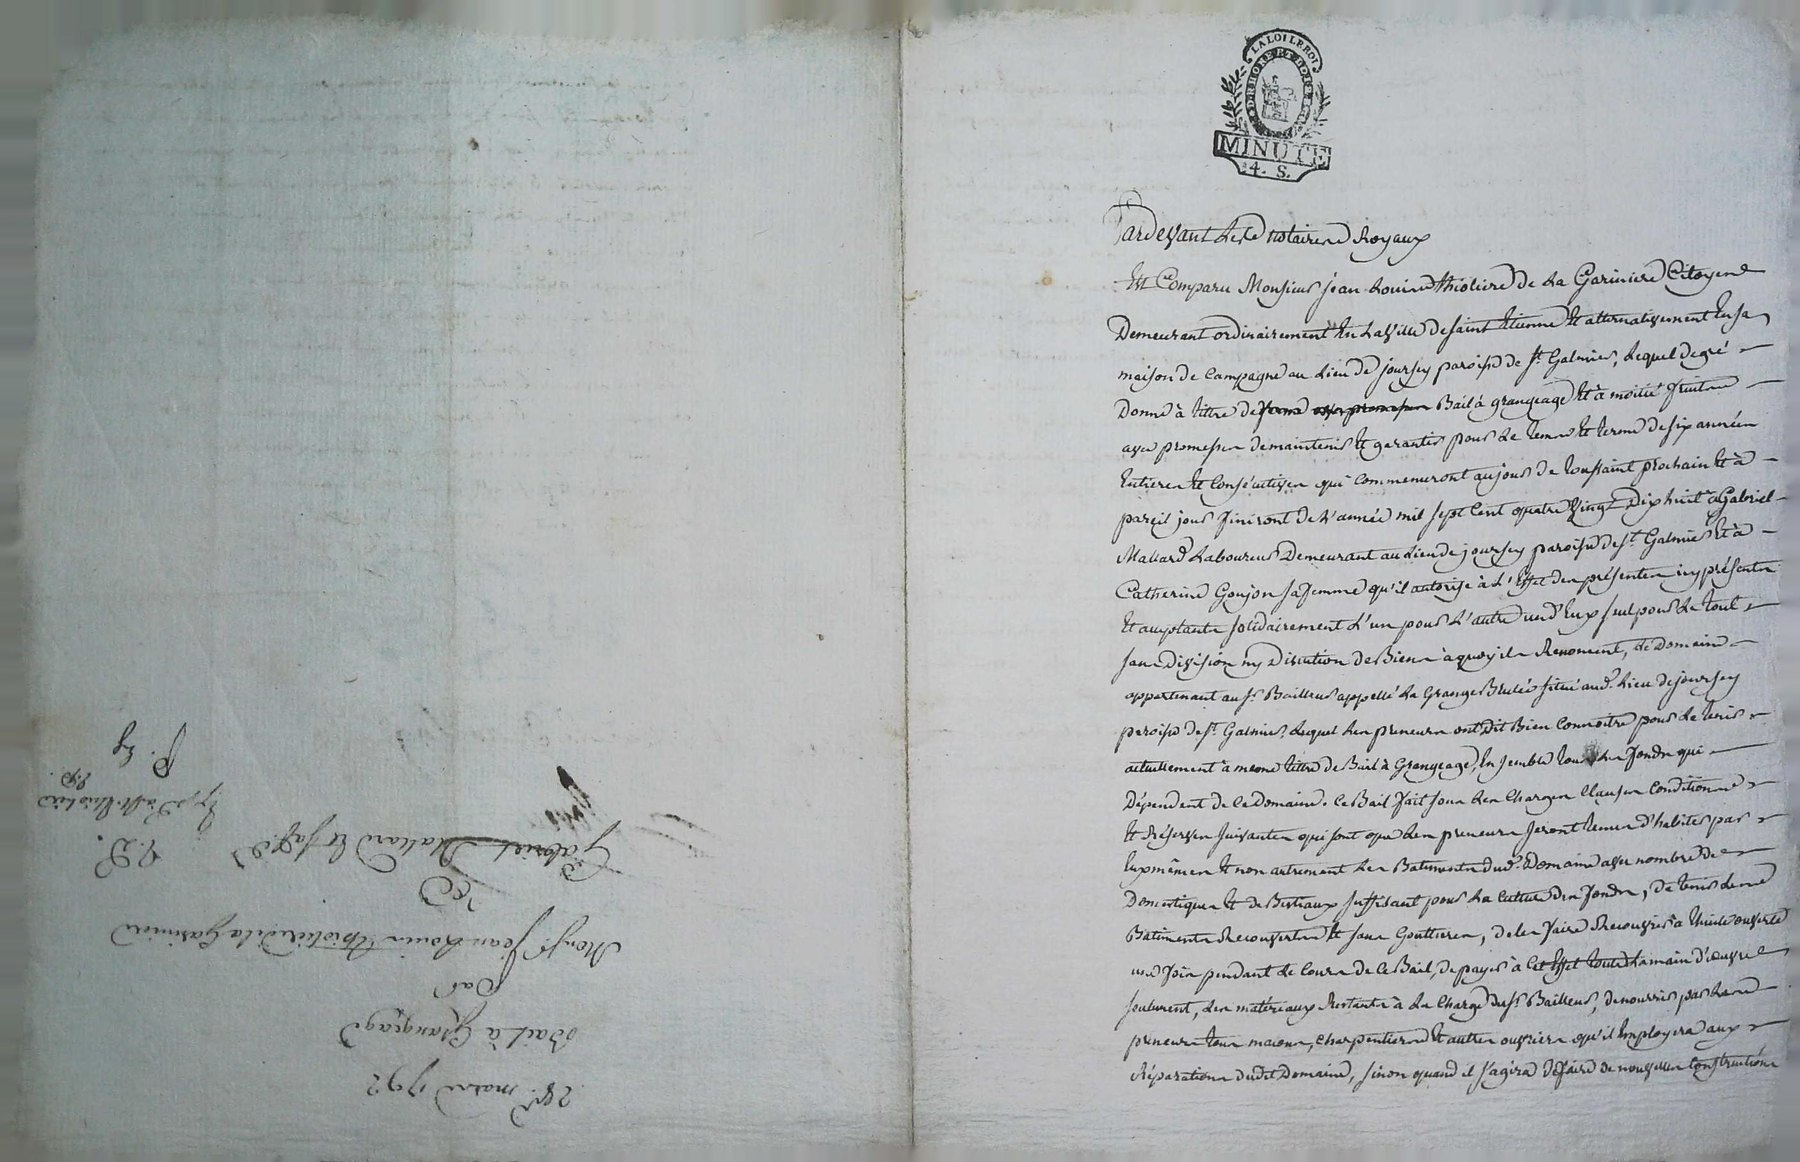 LA LOI LE ROI
MINUTE
4. S.
Pardevant Les notaires Royaux
Est Comparu Monsieur jean Louis thioliere de La Garinière Citoyen
Demeurant ordinairement En La ville de saint Etienne et alternativement En sa
maison de Campagne au Lieu de joursey paroisse de St Galmier, Lequel de gré
Donne à titre de ferme Bail à grangeage et à moitié fruits
avec promesse de maintenir et garantir pour Le tems et terme de six années
Entieres et Consécutives qui Commenceront au jour de toussaint prochain et à
pareil jour finiront de L'année mil sept Cent quatre vingt Dix huit à Gabriel
Mallard Laboureur Demeurant au Lieu de joursey paroisse de St Galmier et à
Catherine Goujon sa femme qu'il autorise à L'Effet des présentes icy présents
Et acceptants solidairement L'un pour L'autre un d'Eux seul pour Le tout
sans Division ny Discution de Biens à quoy ils Renoncent, Le Domaine
appartenant au Sr Bailleur appellé La Grange Brulée situé aud. Lieu de joursey
paroisse de St Galmier, Lequel Les preneurs ont Dit Bien Connoitre pour Le tenir
actuellement à meme titre de Bail à Grangeage, Ensemble tous Les fonds qui
Dépendent de Ce Domaine. Ce Bail fait sous Les Charges Clauses Conditions
Et Réserves suivantes qui sont que Les preneurs seront tenus d'habiter par
Euxmêmes et non autrement Les Batiments dud. Domaine avec nombre de
Domestiques et de Bestiaux suffisant pour La Culture des fonds, de tenir Les
Batiments Recouverts et sans Gouttieres, de les faire Recouvrir à thuile ouverte
une fois pendant Le Cours de Ce Bail, de payer à Cet Effet toute La main d'œuvre
seulement, Les matériaux Restants à La Charge du Sr Bailleur, de nourrir par Les
preneurs tous macons, Charpentiers et autres ouvriers qu'il Employera aux
Réparations dudit Domaine, sinon quand il s'agira de faire de nouvelles Constructions
28 mars 1792
Bail à Grangeage
Par
Monsr Jean Louis thioliere de la Garinière
à
Gabriel Mallard et sa fe